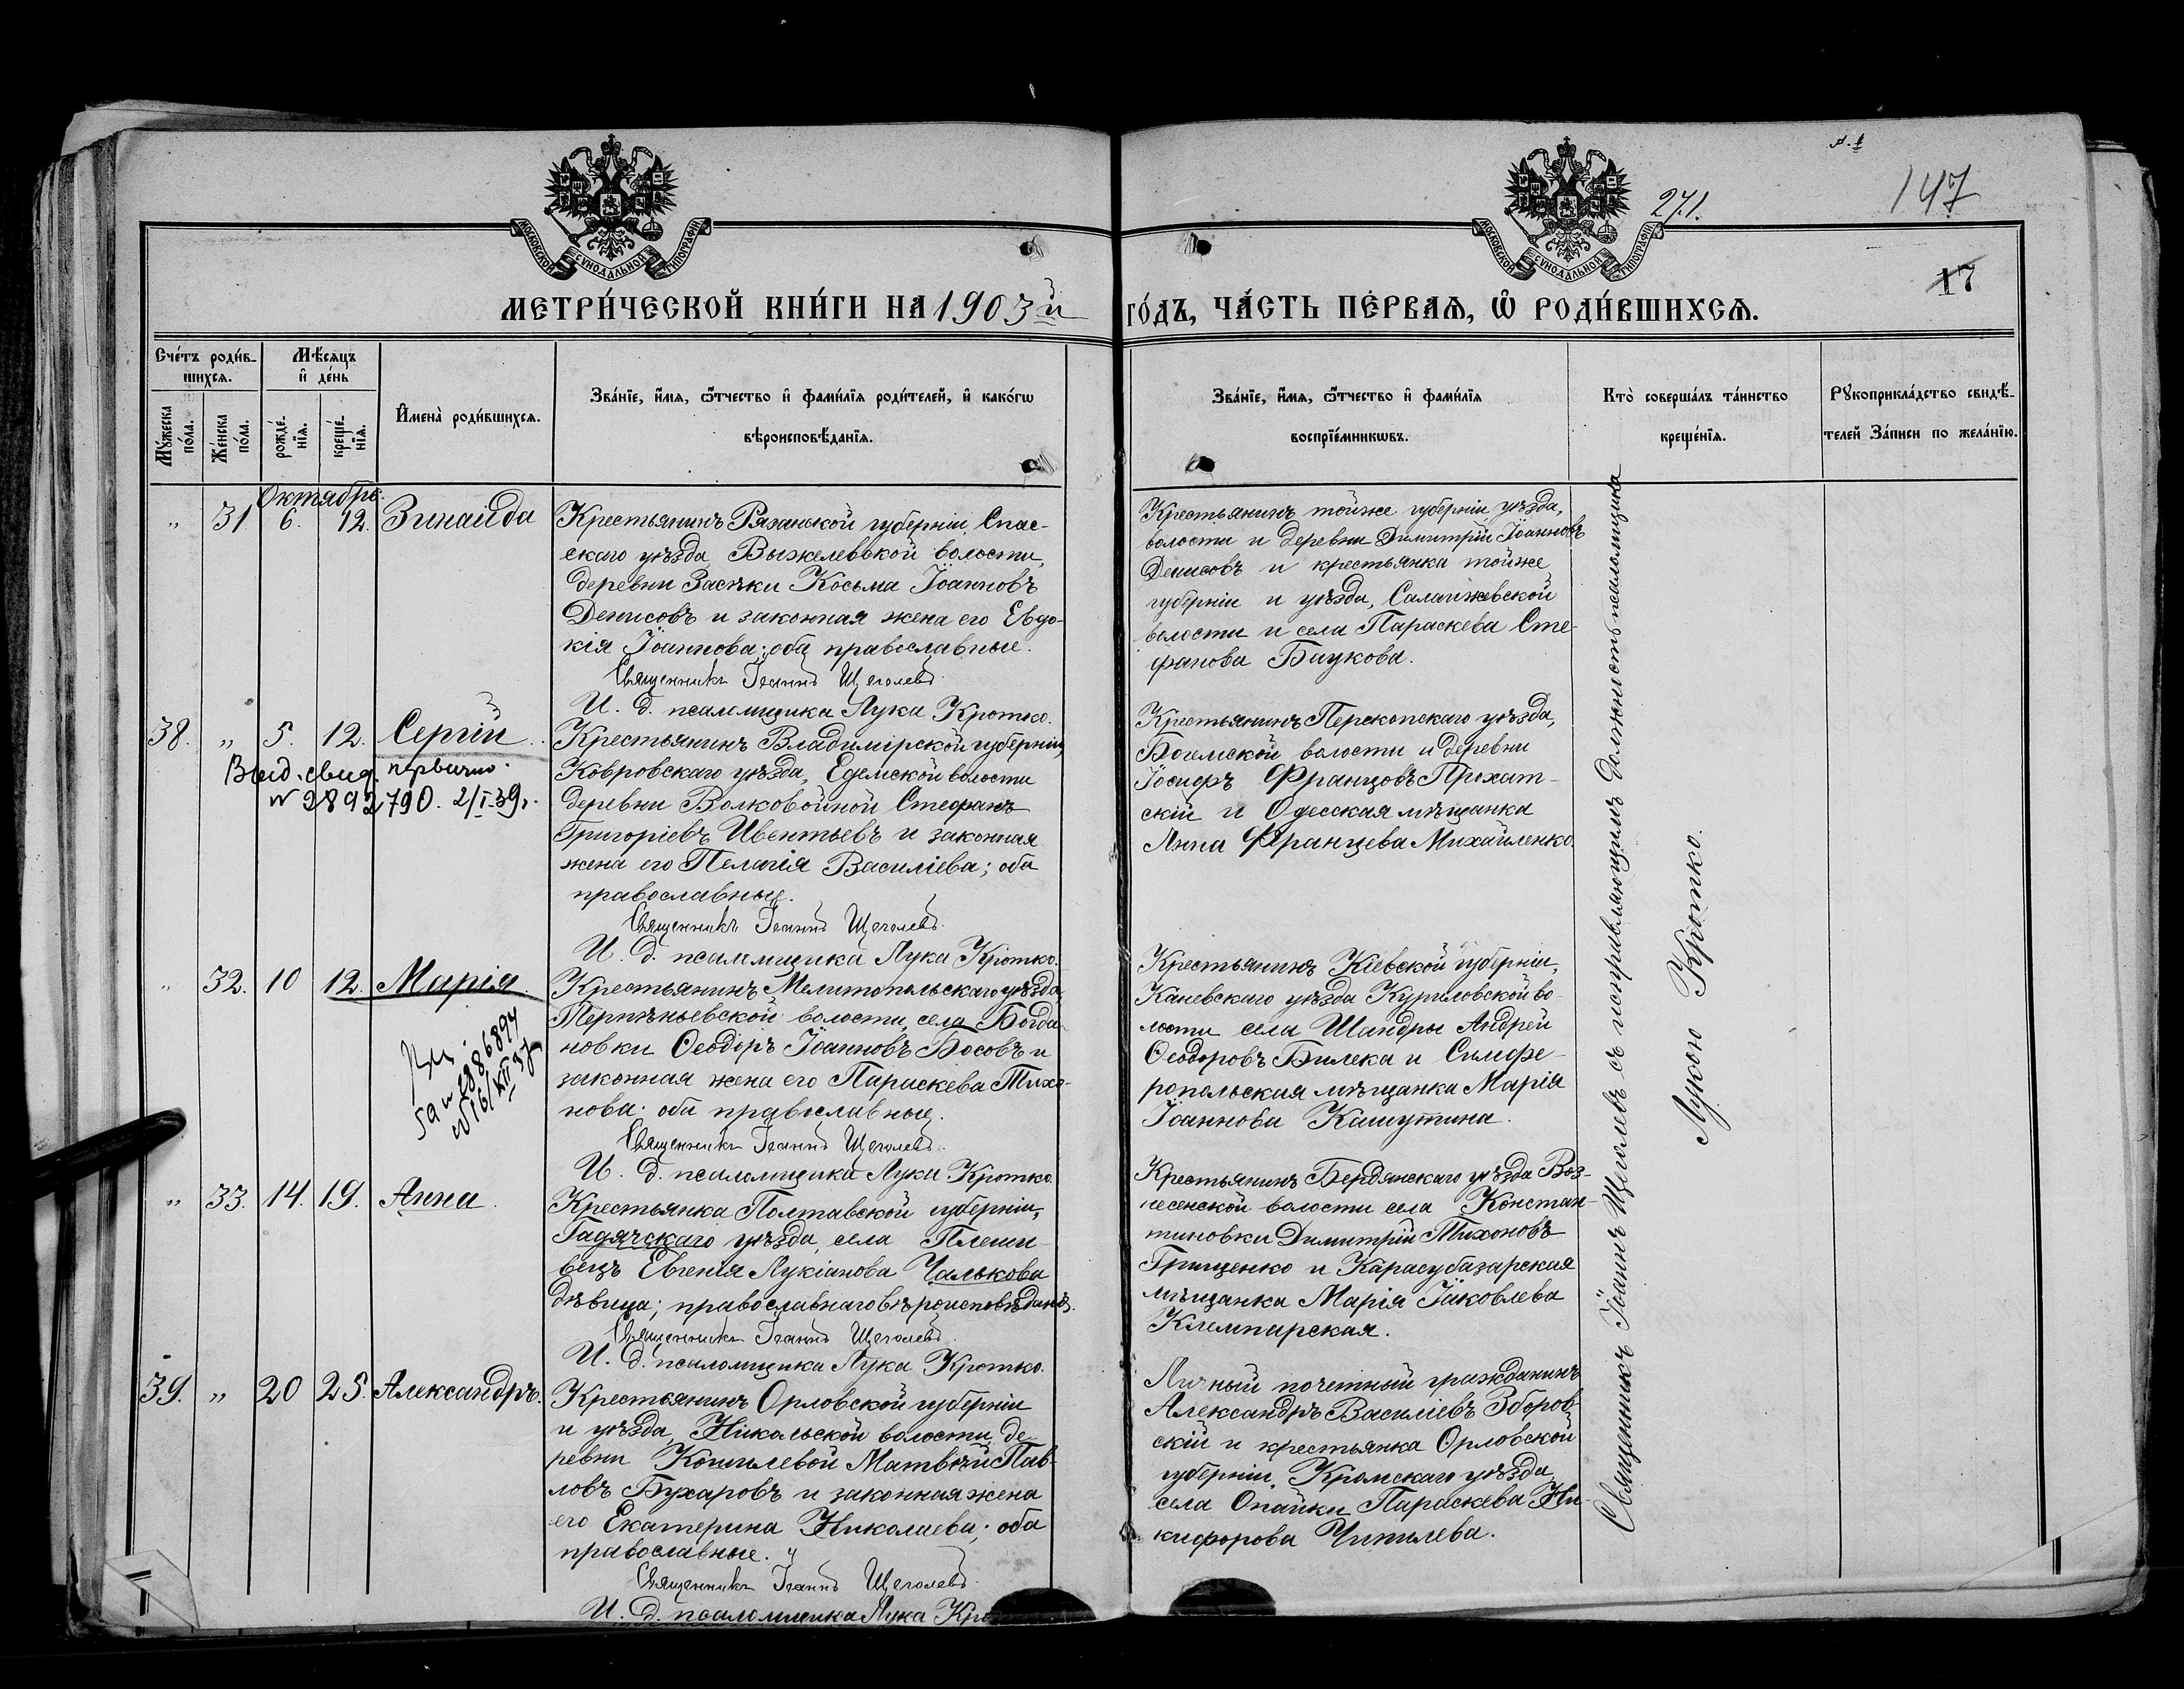 271.
147
17
МОСКОВСКОЙ СѴНОДАЛЬНОЙ ТИПОГРАФІИ
МОСКОВСКОЙ СѴНОДАЛЬНОЙ ТИПОГРАФІИ
МЕТРИ́ЧЕСКОЙ КНИ́ГИ НА 1903 й ГО́ДЪ, ЧА́СТЬ ПЕ́РВАѦ, Ѽ РОДИ́ВШИХСѦ.
Сче́тъ роди́в-
шихсѧ.
Мꙋ́жеска по́ла.
Же́нска по́ла.
Мѣ́сѧцъ
и҆ де́нь
рожде́-
нїѧ.
креще́-
нїѧ.
И҆мена̀ роди́вшихсѧ.
Зва́нїе, и҆́мѧ, ѻ҆́тчество и҆ фами́лїѧ роди́телей, и҆ како́гѡ
вѣроисповѣ́данїѧ.
Зва́нїе, и҆́мѧ, ѻ҆́тчество и҆ фами́лїѧ
воспрїе́мникѡвъ.
Кто̀ соверша́лъ та́инство
креще́нїѧ.
Рꙋкоприкла́дство свидѣ́-
телей За́писи по жела́нїю.
Октябрь.
„ 31 6. 12. Зинаида
Крестьянинъ Рязанской губерніи, Спас-
скаго уѣзда, Выжелевской волости,
деревни Засѣки Косьма Іоанновъ
Денисовъ и законная жена его Евдо-
кія Іоаннова; оба православные.
Священникъ Іоаннъ Щеголевъ.
И. д. псаломщика Лука Кротко.
Крестьянинъ тойже губерніи уѣзда,
волости и деревни Димитрій Іоанновъ
Денисовъ и крестьянка тойже
губерніи и уѣзда, Салаижевской
волости и села Параскева Сте-
фанова Баукова.
38. „ 5. 12. Сергій
Выд. свид. первично.
N 2892790. 2/I-39г.
Крестьянинъ Владимірской губерніи,
Ковровскаго уѣзда, Едемской волости
деревни Волковойной Стефанъ
Григоріевъ Ивентьевъ и законная
жена его Пелагія Василіева; оба
православные.
Священникъ Іоаннъ Щеголевъ.
И. д. псаломщика Лука Кротко.
Крестьянинъ Перекопскаго уѣзда,
Богемской волости и деревни
Іосифъ Францовъ Прохат-
скій и Одесская мѣщанка
Анна Францева Михайленко.
„ 32. 10 12. Марія
Крестьянинъ Мелитопольскаго уѣзда,
Терпѣньевской волости, села Богда-
новки Ѳеодоръ Іоанновъ Босовъ и
законная жена его Параскева Тихо-
нова; оба православные.
Священникъ Іоаннъ Щеголевъ.
И. д. псаломщика Лука Кротко.
Крестьянинъ Кіевской губерніи,
Каневскаго уѣзда Куриловской во-
лости села Шандры Андрей
Ѳеодоровъ Билека и Симфе-
ропольская мѣщанка Марія
Іоаннова Кашутина.
„ 33. 14. 19. Анна.
Крестьянка Полтавской губерніи,
Гадячскаго уѣзда, села Плеши-
вецъ Евгенія Лукіанова Чалькова
дѣвица; православнаго вѣроисповѣданія.
Священникъ Іоаннъ Щеголевъ.
И. д. псаломщика Лука Кротко.
Крестьянинъ Бердянскаго уѣзда Воз-
несенской волости села Констан-
тиновки Димитрій Тихоновъ
Грищенко и Карасубазарская
мѣщанка Марія Іаковлева
Клемпарская.
39. „ 20 25. Александръ.
Крестьянинъ Орловской губерніи
и уѣзда, Никольской волости, де-
ревни Кошелевой Матвѣй Пав-
ловъ Бухаровъ и законная жена
его Екатерина Николаева; оба
православные.
Священникъ Іоаннъ Щеголевъ.
И. д. псаломщика Лука
Личный почетный гражданинъ
Александръ Василіевъ Зборов-
скій и крестьянка Орловской
губерніи, Кромскаго уѣзда,
села Опайки Параскева Ни-
кифорова Чипилева.
Священникъ Іоаннъ Щеголевъ съ исправляющимъ должность псаломщика
Лукою Кротко.